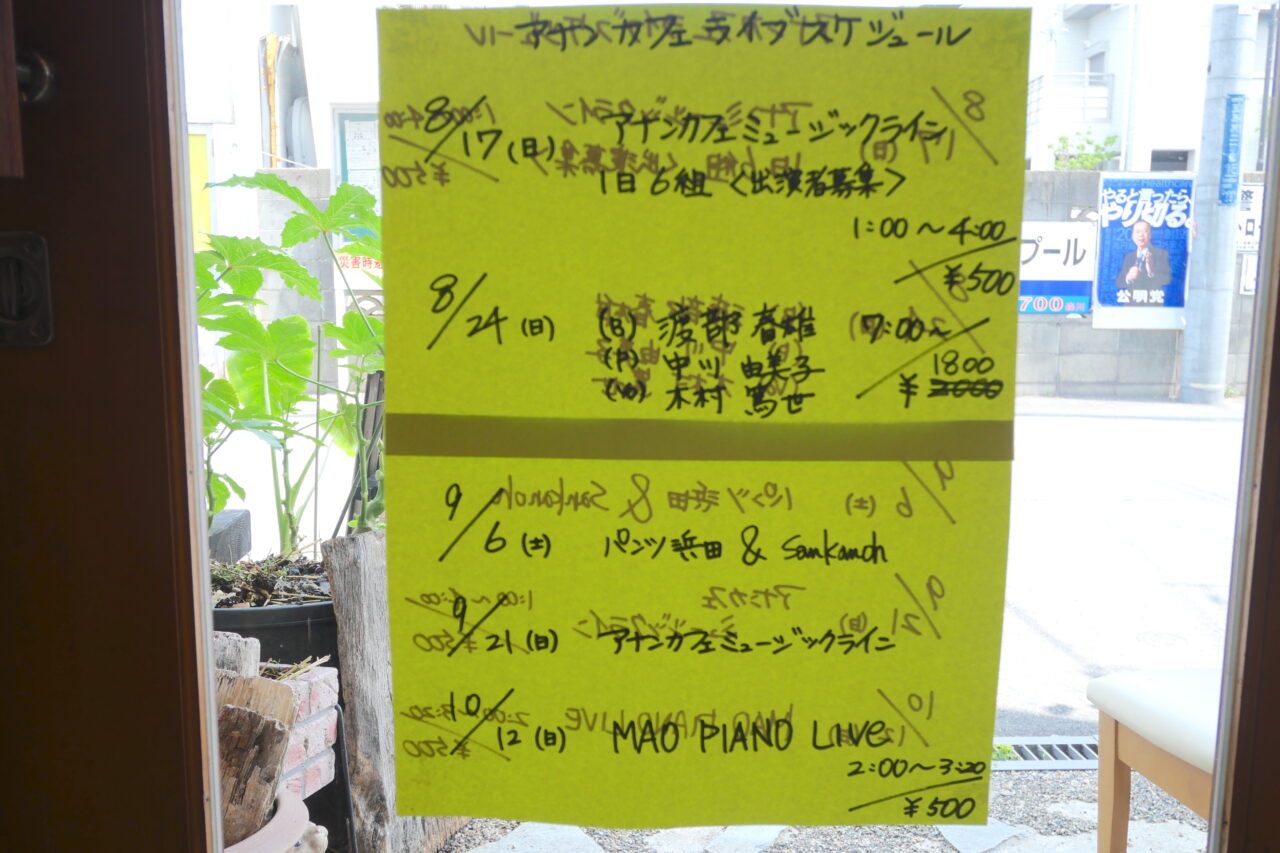 アナンカフェ スケジュール
8/17(日) アナンカフェミュージックライン
1日6組〈出演者募集〉
1:00〜4:00
¥500
8/24(日) (B) 渡部 春雄 7:00〜
(P) 中川 由美子 1800
(Vo) 木村 篤世 ¥2000
9/6(土) パンツ浜田 & Sankanoh
9/21(日) アナンカフェミュージックライン
10/12(日) MAO PIANO LIVE
2:00〜3:20
¥500
災害時
プール
700
やると言ったら
やり切る。
公明党